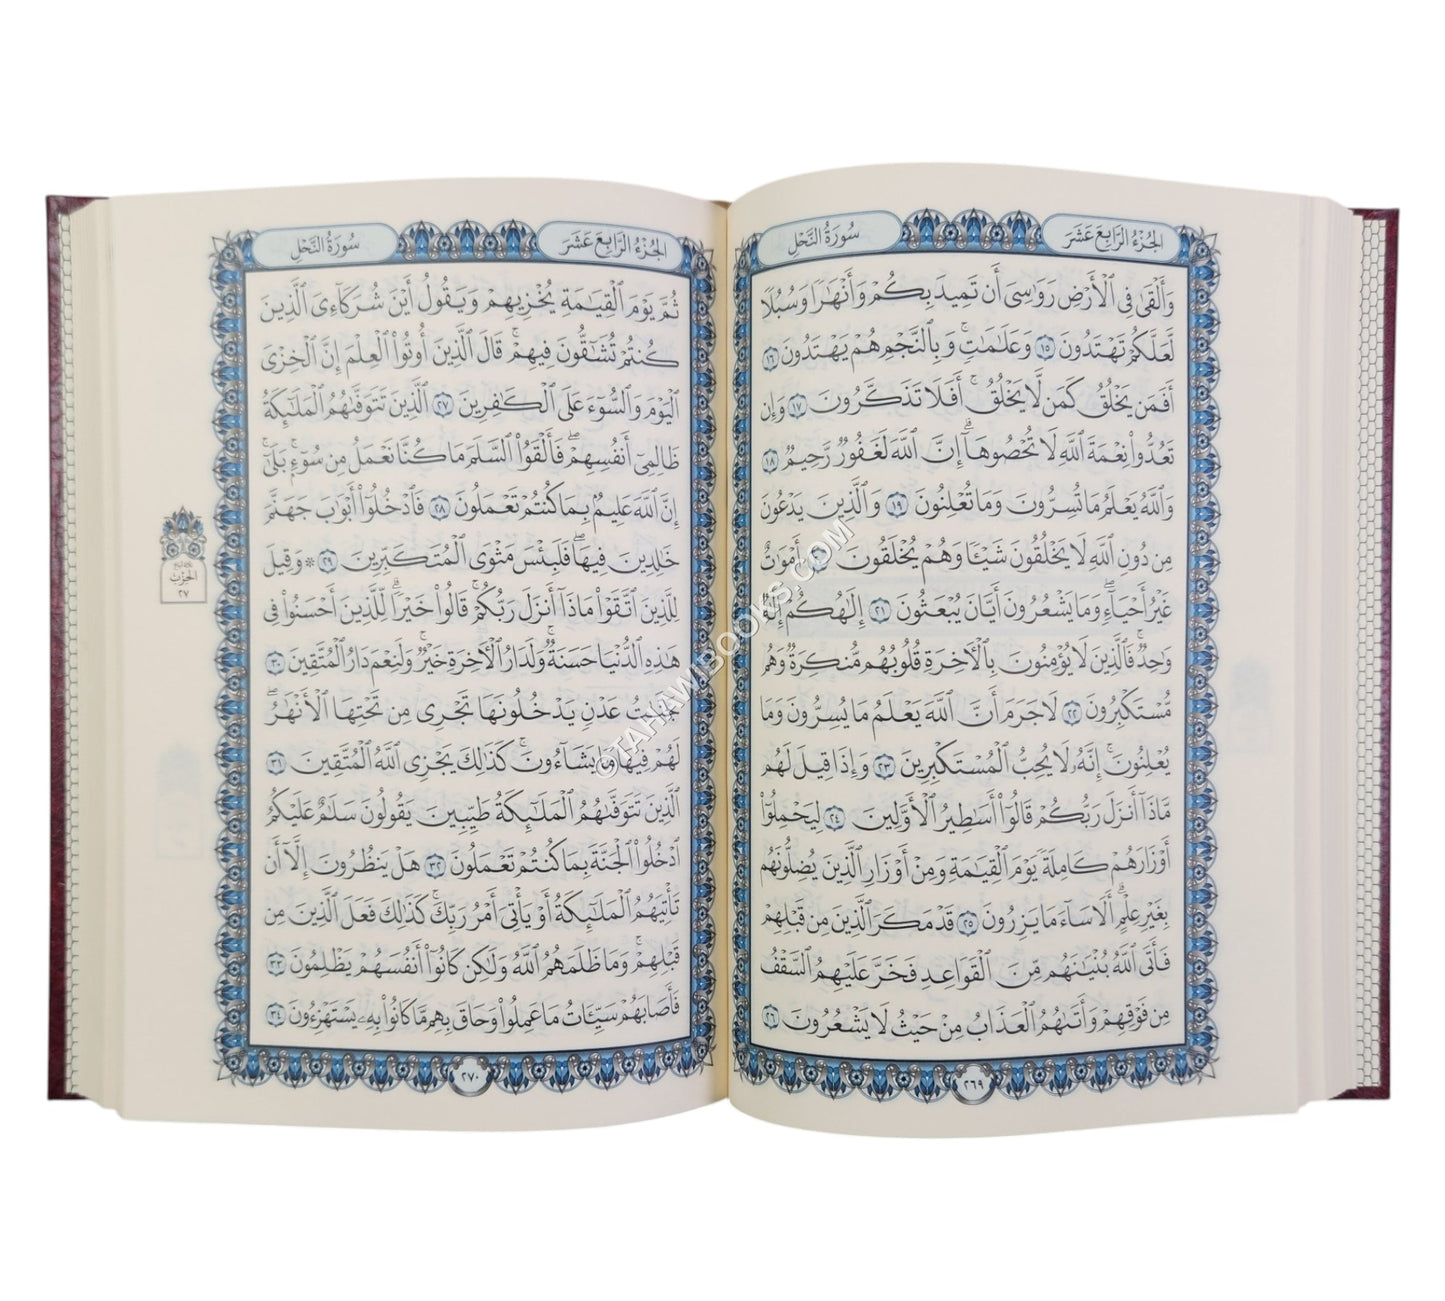 الجُزْءُ الرَّابِعَ عَشَرَ
سُورَةُ النَّحْلِ
وَأَلْقَىٰ فِي ٱلْأَرْضِ رَوَٰسِيَ أَن تَمِيدَ بِكُمْ وَأَنْهَٰرًا وَسُبُلًا
لَّعَلَّكُمْ تَهْتَدُونَ ١٥ وَعَلَٰمَٰتٍۚ وَبِٱلنَّجْمِ هُمْ يَهْتَدُونَ ١٦
أَفَمَن يَخْلُقُ كَمَن لَّا يَخْلُقُۚ أَفَلَا تَذَكَّرُونَ ١٧ وَإِن
تَعُدُّوا۟ نِعْمَةَ ٱللَّهِ لَا تُحْصُوهَآۗ إِنَّ ٱللَّهَ لَغَفُورٌ رَّحِيمٌ ١٨
وَٱللَّهُ يَعْلَمُ مَا تُسِرُّونَ وَمَا تُعْلِنُونَ ١٩ وَٱلَّذِينَ يَدْعُونَ
مِن دُونِ ٱللَّهِ لَا يَخْلُقُونَ شَيْـًٔا وَهُمْ يُخْلَقُونَ ٢٠ أَمْوَٰتٌ
غَيْرُ أَحْيَآءٍۖ وَمَا يَشْعُرُونَ أَيَّانَ يُبْعَثُونَ ٢١ إِلَٰهُكُمْ إِلَٰهٌ
وَٰحِدٌۚ فَٱلَّذِينَ لَا يُؤْمِنُونَ بِٱلْـَٔاخِرَةِ قُلُوبُهُم مُّنكِرَةٌ وَهُم
مُّسْتَكْبِرُونَ ٢٢ لَا جَرَمَ أَنَّ ٱللَّهَ يَعْلَمُ مَا يُسِرُّونَ وَمَا
يُعْلِنُونَۚ إِنَّهُۥ لَا يُحِبُّ ٱلْمُسْتَكْبِرِينَ ٢٣ وَإِذَا قِيلَ لَهُم
مَّاذَآ أَنزَلَ رَبُّكُمْ قَالُوٓا۟ أَسَٰطِيرُ ٱلْأَوَّلِينَ ٢٤ لِيَحْمِلُوٓا۟
أَوْزَارَهُمْ كَامِلَةً يَوْمَ ٱلْقِيَٰمَةِ وَمِنْ أَوْزَارِ ٱلَّذِينَ يُضِلُّونَهُم
بِغَيْرِ عِلْمٍۗ أَلَا سَآءَ مَا يَزِرُونَ ٢٥ قَدْ مَكَرَ ٱلَّذِينَ مِن قَبْلِهِمْ
فَأَتَى ٱللَّهُ بُنْيَٰنَهُم مِّنَ ٱلْقَوَاعِدِ فَخَرَّ عَلَيْهِمُ ٱلسَّقْفُ
مِن فَوْقِهِمْ وَأَتَىٰهُمُ ٱلْعَذَابُ مِنْ حَيْثُ لَا يَشْعُرُونَ ٢٦
٢٦٩
الجُزْءُ الرَّابِعَ عَشَرَ
سُورَةُ النَّحْلِ
ثُمَّ يَوْمَ ٱلْقِيَٰمَةِ يُخْزِيهِمْ وَيَقُولُ أَيْنَ شُرَكَآءِيَ ٱلَّذِينَ
كُنتُمْ تُشَٰٓقُّونَ فِيهِمْۚ قَالَ ٱلَّذِينَ أُوتُوا۟ ٱلْعِلْمَ إِنَّ ٱلْخِزْيَ
ٱلْيَوْمَ وَٱلسُّوٓءَ عَلَى ٱلْكَٰفِرِينَ ٢٧ ٱلَّذِينَ تَتَوَفَّىٰهُمُ ٱلْمَلَٰٓئِكَةُ
ظَالِمِيٓ أَنفُسِهِمْۖ فَأَلْقَوُا۟ ٱلسَّلَمَ مَا كُنَّا نَعْمَلُ مِن سُوٓءٍۭۚ بَلَىٰٓۚ
إِنَّ ٱللَّهَ عَلِيمٌۢ بِمَا كُنتُمْ تَعْمَلُونَ ٢٨ فَٱدْخُلُوٓا۟ أَبْوَٰبَ جَهَنَّمَ
خَٰلِدِينَ فِيهَاۖ فَلَبِئْسَ مَثْوَى ٱلْمُتَكَبِّرِينَ ٢٩ * وَقِيلَ
لِلَّذِينَ ٱتَّقَوْا۟ مَاذَآ أَنزَلَ رَبُّكُمْۚ قَالُوا۟ خَيْرًاۗ لِّلَّذِينَ أَحْسَنُوا۟ فِي
هَٰذِهِ ٱلدُّنْيَا حَسَنَةٌۚ وَلَدَارُ ٱلْـَٔاخِرَةِ خَيْرٌۚ وَلَنِعْمَ دَارُ ٱلْمُتَّقِينَ ٣٠
جَنَّٰتُ عَدْنٍ يَدْخُلُونَهَا تَجْرِي مِن تَحْتِهَا ٱلْأَنْهَٰرُۖ
لَهُمْ فِيهَا مَا يَشَآءُونَۚ كَذَٰلِكَ يَجْزِي ٱللَّهُ ٱلْمُتَّقِينَ ٣١
ٱلَّذِينَ تَتَوَفَّىٰهُمُ ٱلْمَلَٰٓئِكَةُ طَيِّبِينَ يَقُولُونَ سَلَٰمٌ عَلَيْكُمُ
ٱدْخُلُوا۟ ٱلْجَنَّةَ بِمَا كُنتُمْ تَعْمَلُونَ ٣٢ هَلْ يَنظُرُونَ إِلَّآ أَن
تَأْتِيَهُمُ ٱلْمَلَٰٓئِكَةُ أَوْ يَأْتِيَ أَمْرُ رَبِّكَۚ كَذَٰلِكَ فَعَلَ ٱلَّذِينَ مِن
قَبْلِهِمْۚ وَمَا ظَلَمَهُمُ ٱللَّهُ وَلَٰكِن كَانُوٓا۟ أَنفُسَهُمْ يَظْلِمُونَ ٣٣
فَأَصَابَهُمْ سَيِّـَٔاتُ مَا عَمِلُوا۟ وَحَاقَ بِهِم مَّا كَانُوا۟ بِهِۦ يَسْتَهْزِءُونَ ٣٤
٢٧٠
الحِزْبِ
٢٧
©TAHAWIBOOKS.COM